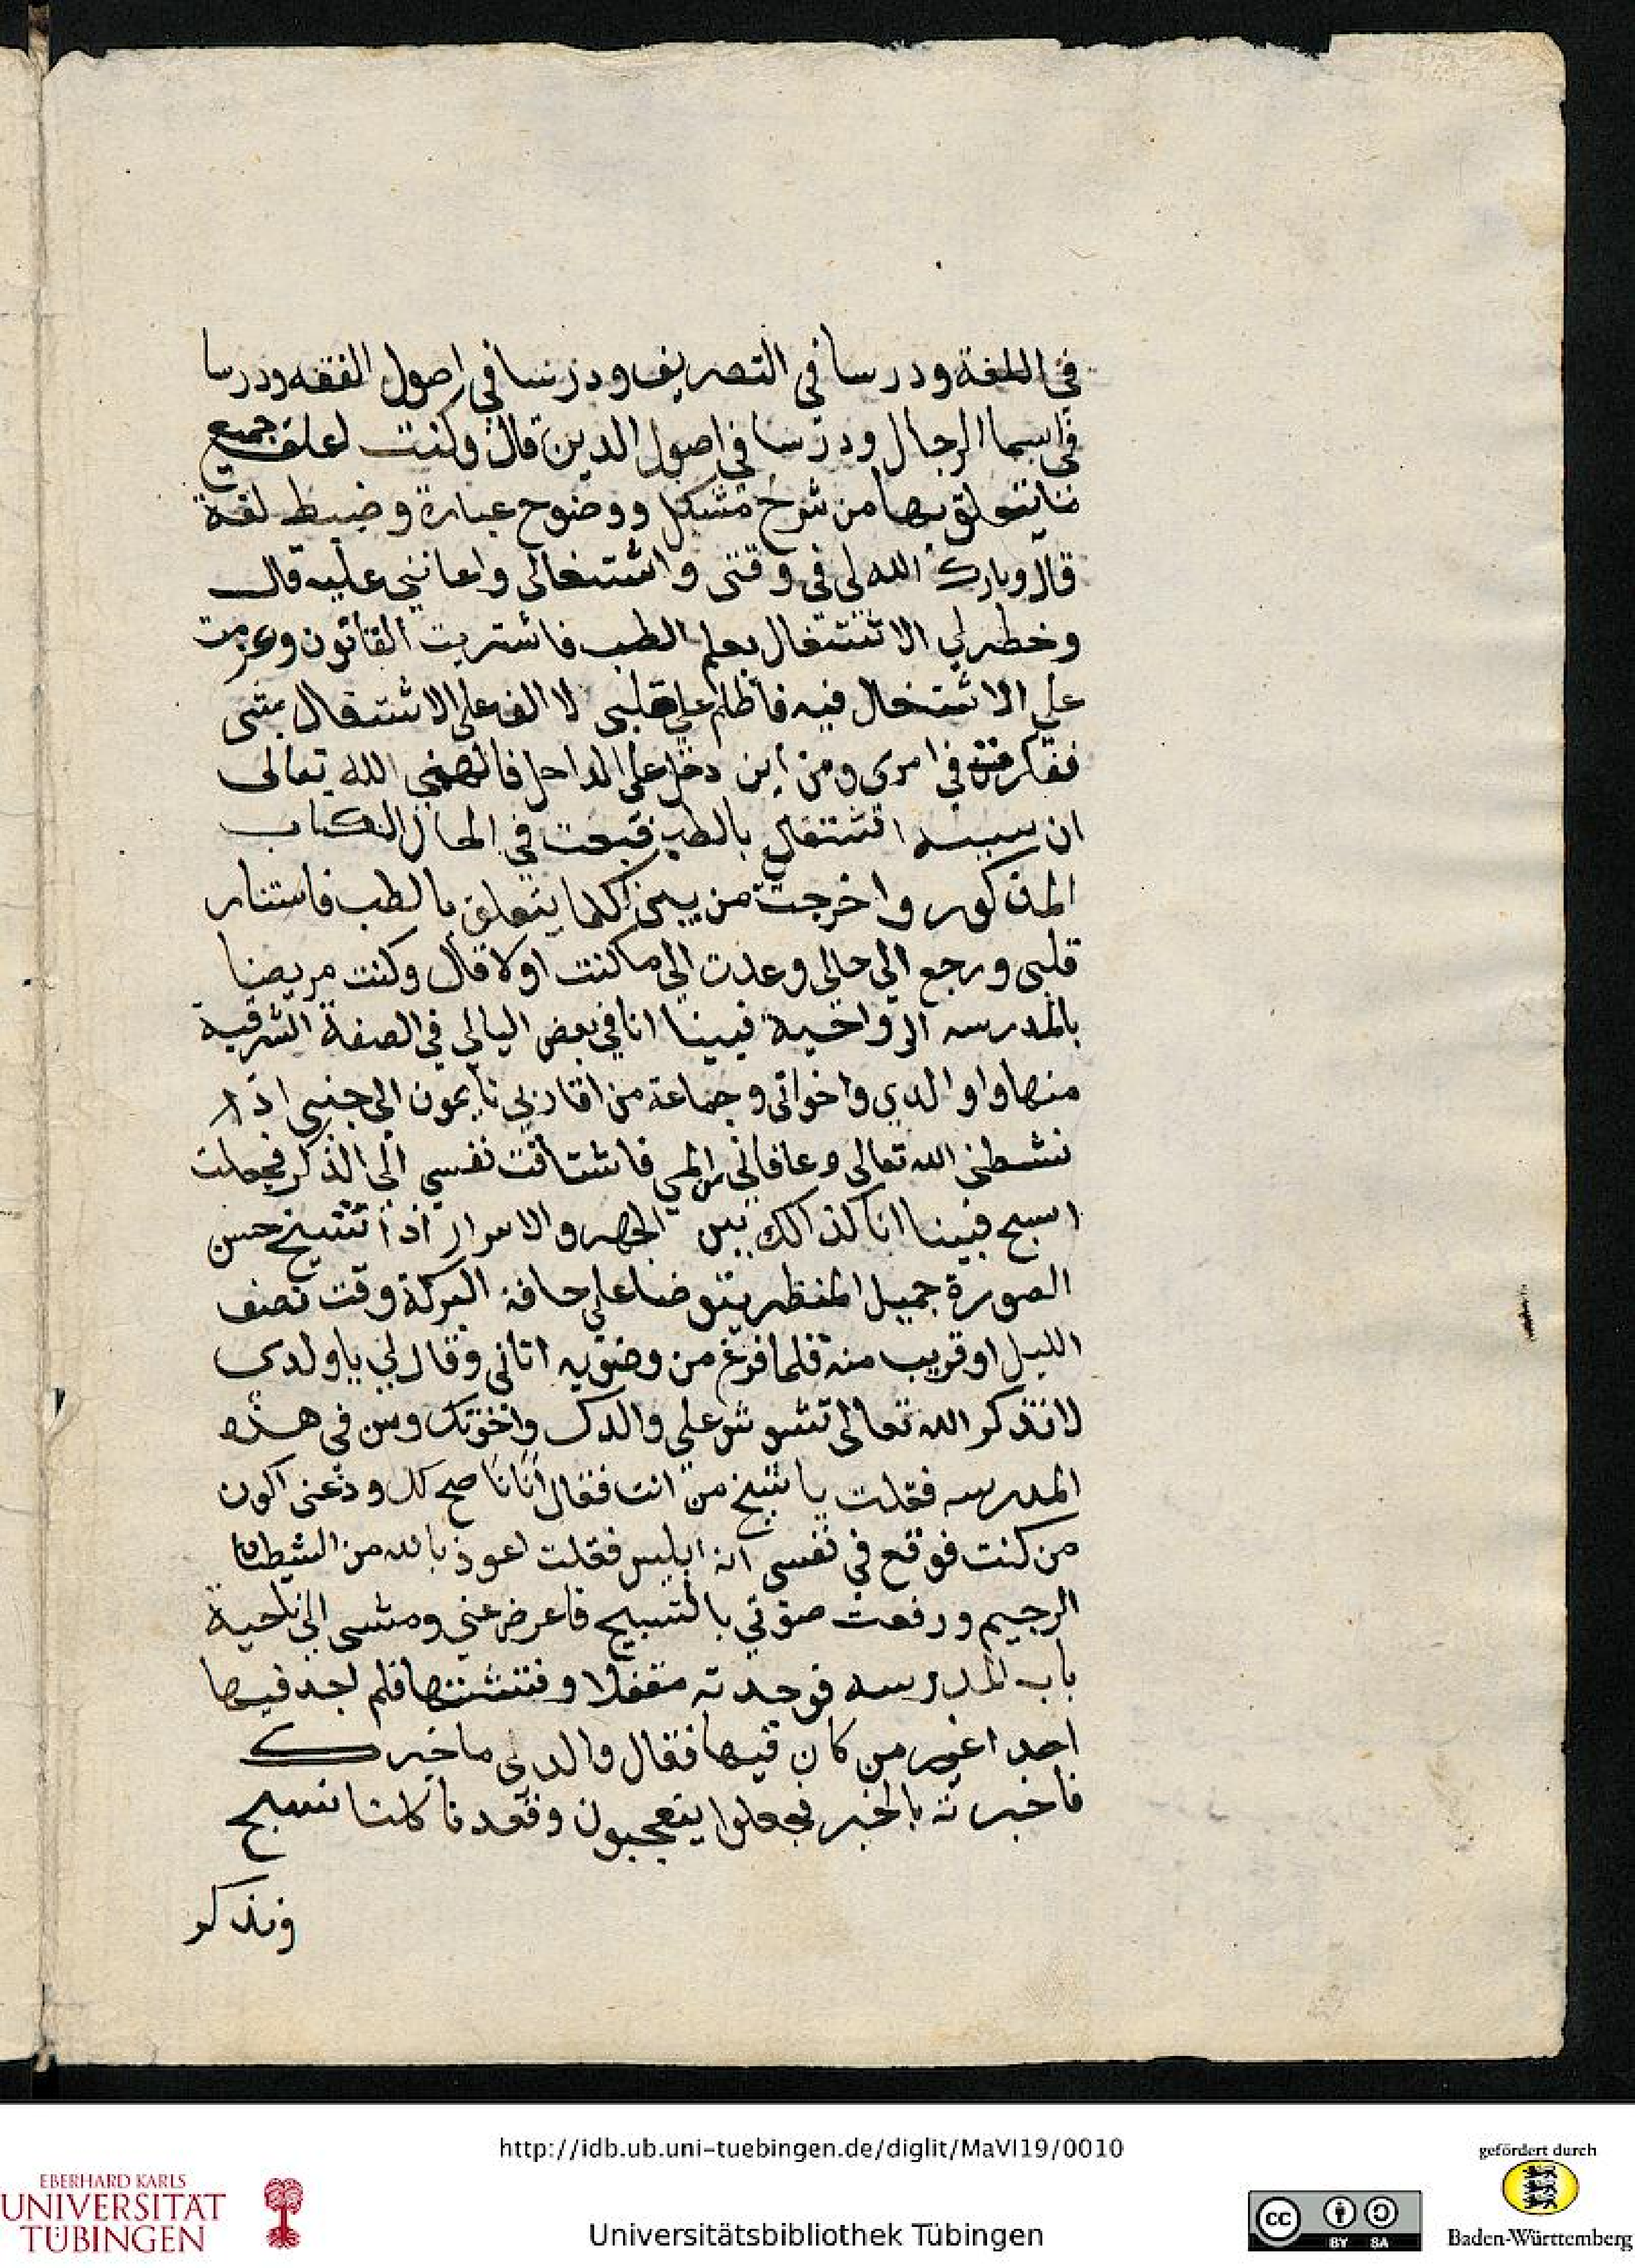 في اللغة ودرسا في التصريف ودرسا في اصول الفقه ودرسا
في اسما الرجال ودرسا في اصول الدين قال وكنت اعلق جميع
ما يتعلق بها من شرح مشكل ووضوح عبارة وضبط لغة
قال وبارك الله لي في وقتي واشتغالي واعانني عليه قال
وخطر لي الاشتغال بعلم الطب فاشتريت القانون وعزمت
على الاشتغال فيه فاظلم علي قلبي لا اقدر على الاشتغال بشى
ففكرت في امري ومن اين دخل علي الداخل فالهمني الله تعالى
ان سببه اشتغالي بالطب فبعت في الحال الكتاب
المذكور واخرجت من بيتي كلما يتعلق بالطب فاستنار
قلبي ورجع الي حالي وعدت الى ما كنت اولا قال وكنت مريضا
بالمدرسه الرواحية فبينا انا في بعض اليالي في الصفة الشرقية
منها واوالدي واخواتي وجماعة من اقاربي نايمون الى جنبي اذا
نشطني الله تعالى وعافاني من المي فاشتاقت نفسي الى الذكر فجعلت
اسبح فبينا انا كذالك بين الجهر والاسرار اذا شيخ حسن
الصورة جميل المنظر يتوضا على حافة البركة وقت نصف
الليل او قريب منه فلما فرغ من وضويه اتاني وقال لي يا ولدي
لا تذكر الله تعالى تشوش على والدك واخوتك ومن في هذه
المدرسه فقلت يا شيخ من انت فقال انا ناصح لك ودعني اكون
من كنت فوقع في نفسي انه ابليس فقلت اعوذ بالله من الشيطان
الرجيم ورفعت صوتي بالتسبيح فاعرض عني ومشى الى ناحية
باب المدرسه فوجدته مقفلا وفتشتها فلم اجد فيها
احدا غير من كان فيها فقال والدي ما خبرك
فاخبرته بالخبر فجعلوا يتعجبون وقعدنا كلنا نسبح
ونذكر
http://idb.ub.uni-tuebingen.de/diglit/MaVI19/0010
Universitätsbibliothek Tübingen
EBERHARD KARLS
UNIVERSITÄT
TÜBINGEN
cc
BY SA
gefördert durch
Baden-Württemberg